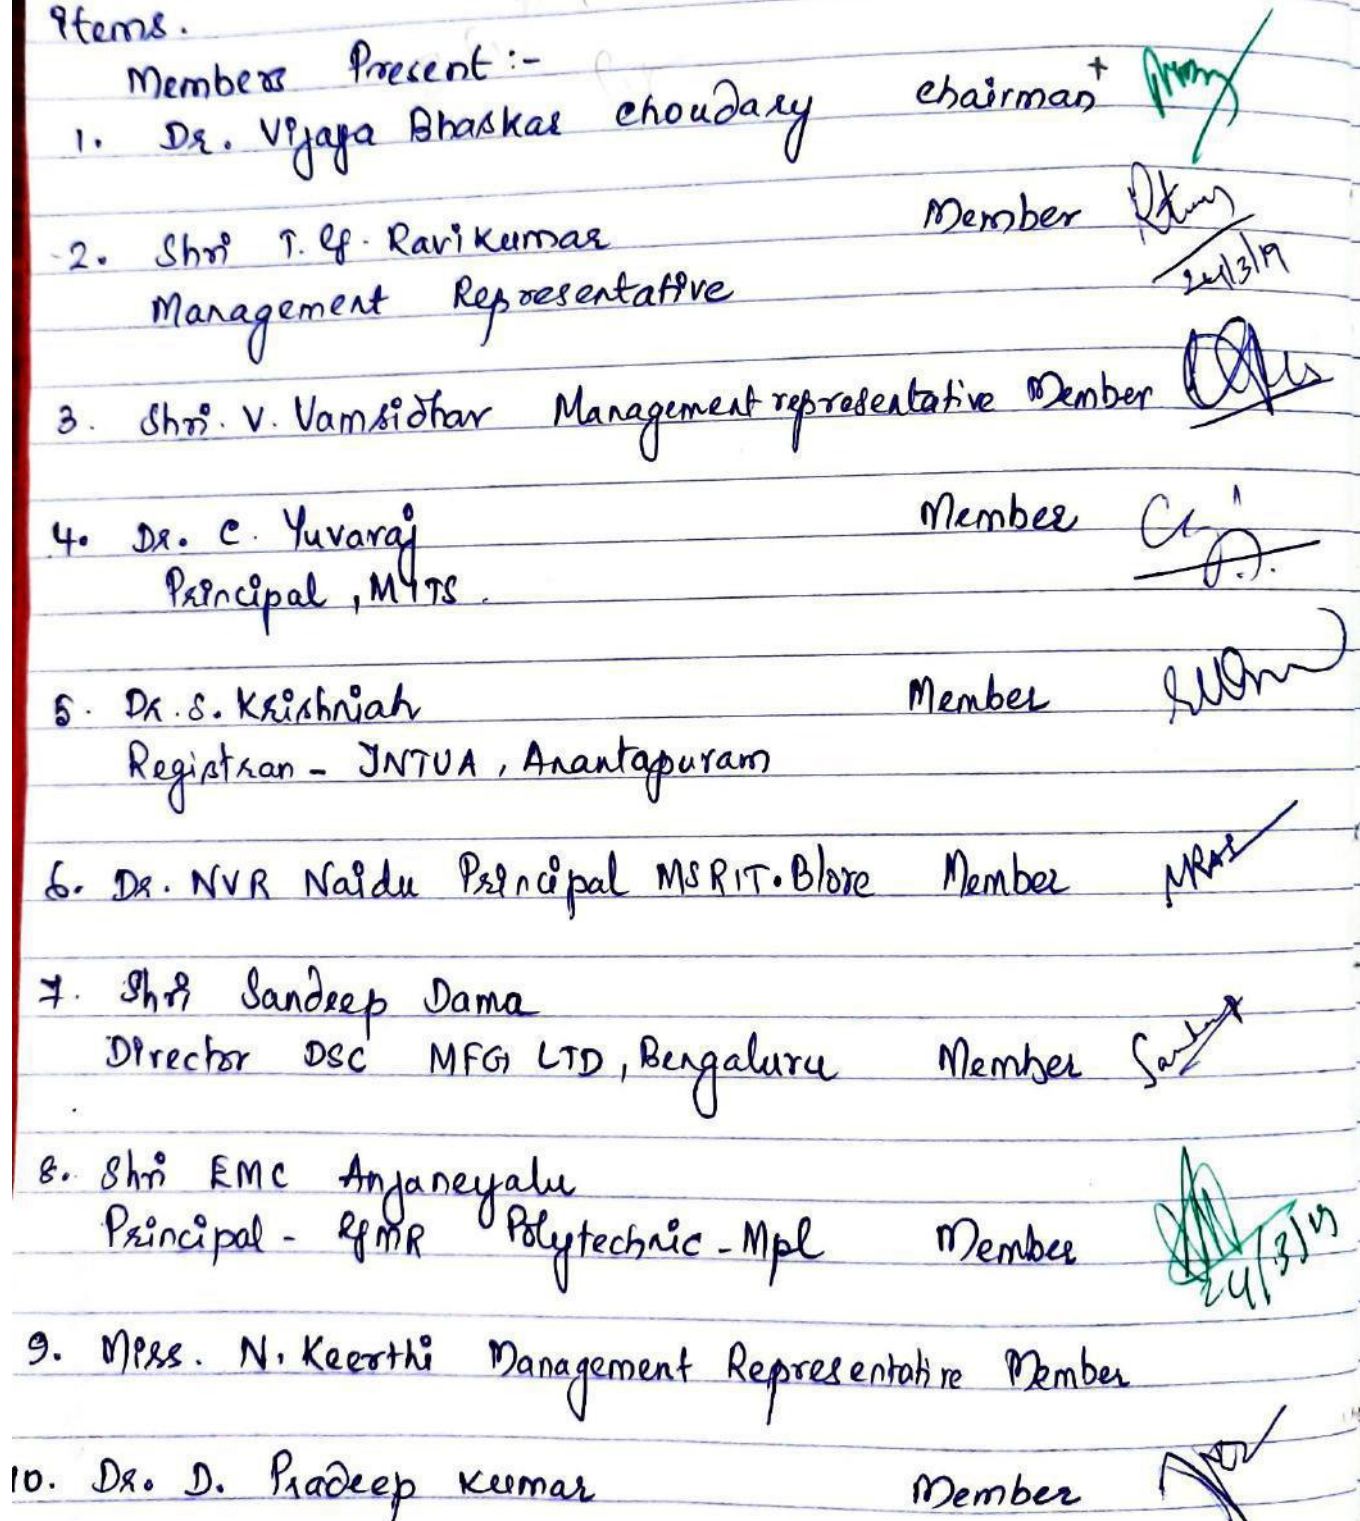 items.
Members Present :-
1. Dr. Vijaya Bhaskar choudary chairman
2. Shri T. G. Ravi Kumar Member
24/3/19
Management Representative
3. Shri. V. Vamsidhar Management representative Member
4. Dr. C. Yuvaraj Member
Principal, MITS.
5. Dr. S. Krishniah Member
Registrar - JNTUA, Anantapuram
6. Dr. NVR Naidu Principal MSRIT. Blore Member
7. Shri Sandeep Dama
Director DSC MFG LTD, Bengaluru Member
8. Shri EMC Anjaneyalu
Principal - GMR Polytechnic - Mpl Member
24/3/19
9. Miss. N. Keerthi Management Representative Member
10. Dr. D. Pradeep Kumar Member